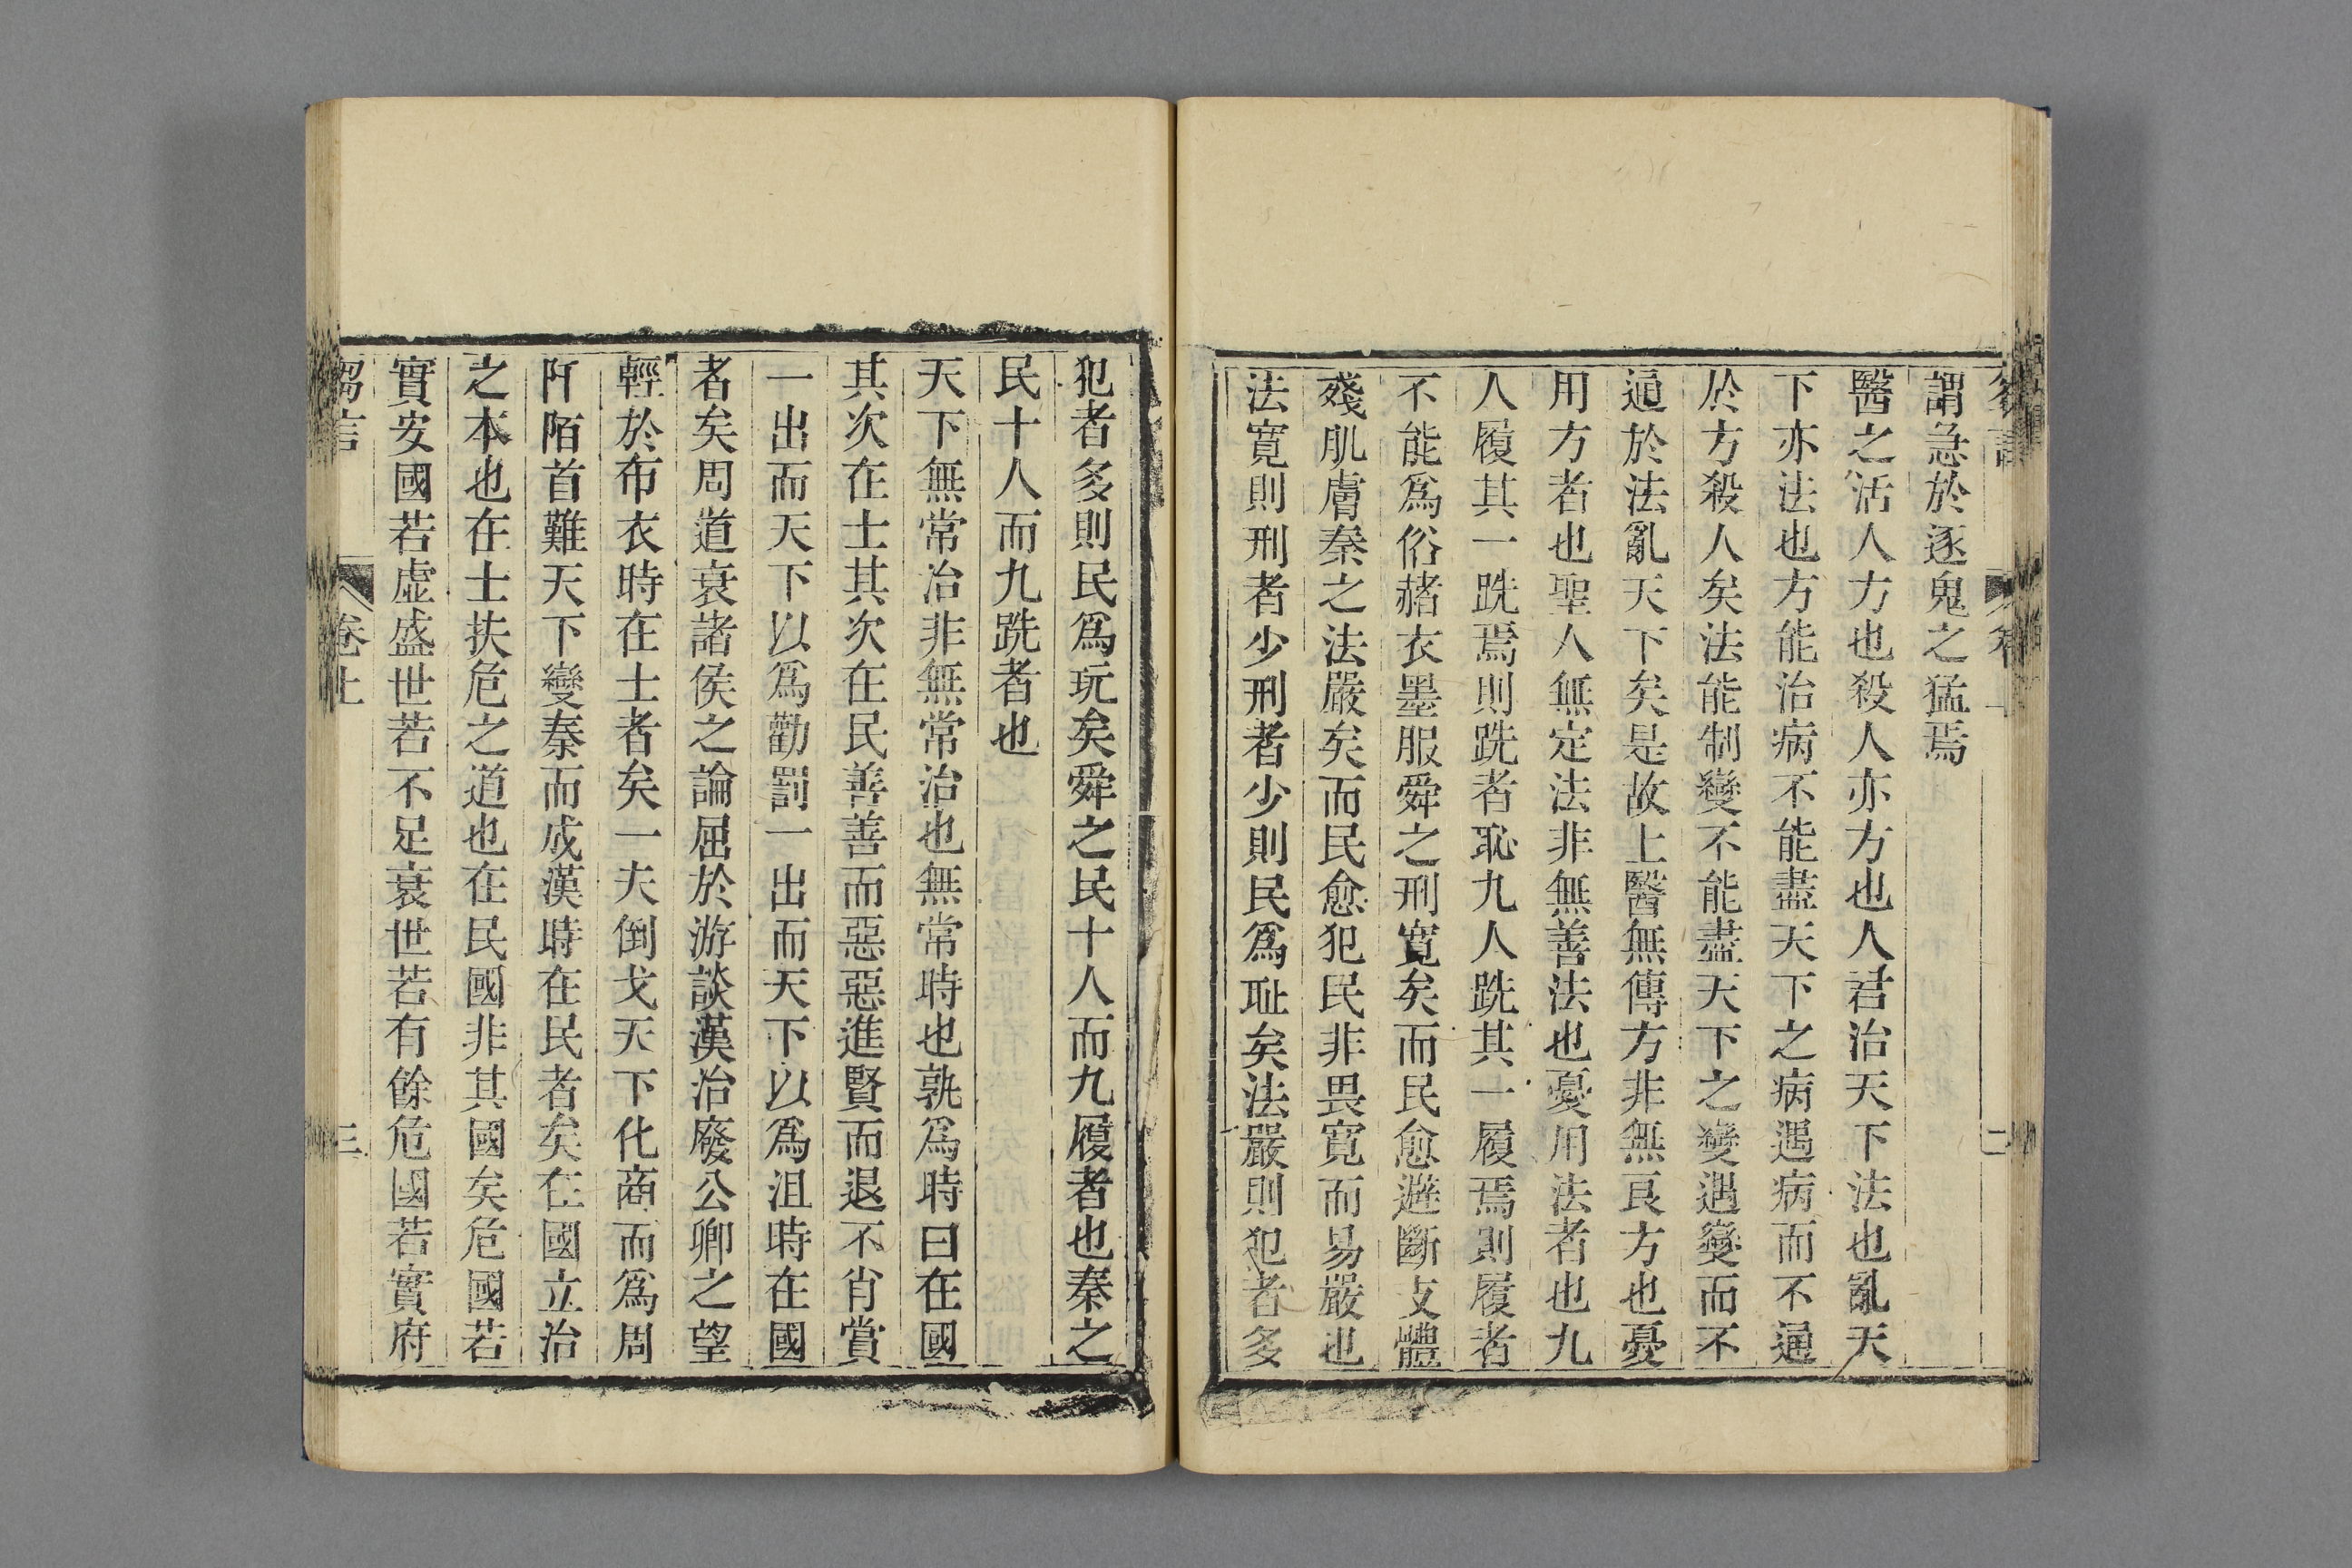 謂急於逐鬼之猛焉
醫之活人方也殺人亦方也人君治天下法也亂天
下亦法也方能治病不能盡天下之病遇病而不通
於方殺人矣法能制變不能盡天下之變遇變而不
通於法亂天下矣是故上醫無傳方非無良方也憂
用方者也聖人無定法非無善法也憂用法者也九
人履其一跣焉則跣者恥九人跣其一履焉則履者
不能爲俗赭衣墨服舜之刑寬矣而民愈避斷支體
殘肌膚秦之法嚴矣而民愈犯民非畏寬而易嚴也
法寬則刑者少刑者少則民爲耻矣法嚴則犯者多
犯者多則民爲玩矣舜之民十人而九履者也秦之
民十人而九跣者也
天下無常治非無常治也無常時也孰爲時曰在國
其次在士其次在民善善而惡惡進賢而退不肖賞
一出而天下以爲勸罰一出而天下以爲沮時在國
者矣周道衰諸侯之論屈於游談漢治廢公卿之望
輕於布衣時在士者矣一夫倒戈天下化商而爲周
阡陌首難天下變秦而成漢時在民者矣在國立治
之本也在士扶危之道也在民國非其國矣危國若
實安國若虛盛世若不足衰世若有餘危國若實府
芻言 卷上 三